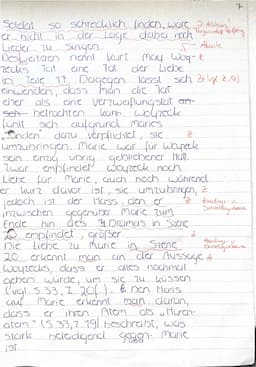 7
Soldat so schrecklich finden, wäre
er nicht in der Lage dabei noch
Lieder zu singen.
Absätze
Desweiteren nennt Kurt May Woy-
zecks Tat eine Tat der Liebe
in Zeile 17. Dagegen lässt sich
einwenden, dass man die Tat
eher als eine Verzweiflungstat an-
sehen betrachten kann. Woyzeck
fühlt sich aufgrund Maries
"Sünden" dazu verpflichtet, sie
umzubringen. Marie war für Woyzeck
sein einzig übrig gebliebener Halt.
Zwar empfindet Woyzeck noch
Liebe für Marie, auch noch während
er kurz davor ist, sie umzubringen,
jedoch ist der Hass, den er
inzwischen gegenüber Marie zum
Ende hin des Dramas in Szene
20 empfindet, größer.
Die Liebe zu Marie in Szene
20 erkennt man an der Aussage
Woyzecks, dass er alles nochmal
geben würde, um sie zu küssen
(vgl. S.33, Z. 20f.). Den Hass
auf Marie erkennt man daran,
dass er ihren Atem als "Huren-
atem" (S.33, Z.19) beschreibt, was
stark beleidigend gegen Marie
ist.